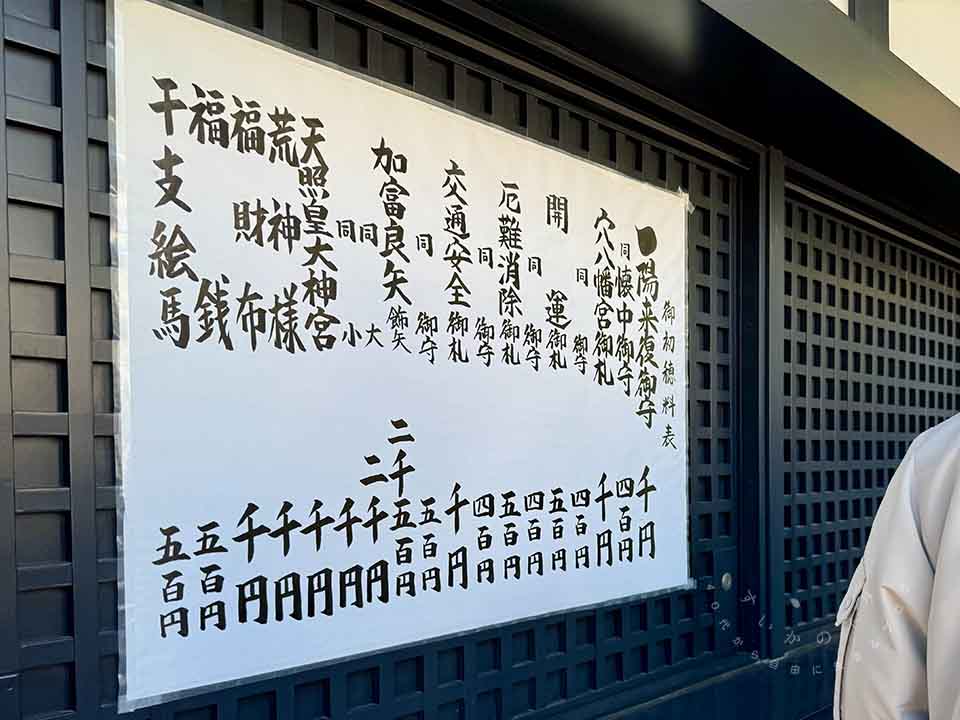 御初穂料表
一陽来復御守 千円
同懐中御守 四百円
穴八幡宮御札 千円
同 御守 四百円
開運御札 五百円
同 御守 四百円
厄難消除御札 五百円
同 御守 四百円
交通安全御札 千円
同 御守 五百円
加富良矢 飾矢 二千五百円
同 大 二千円
同 小 千円
天照皇大神宮 千円
荒神様 千円
福財布 千円
福銭 五百円
干支絵馬 五百円
すいかの
40代から自由に